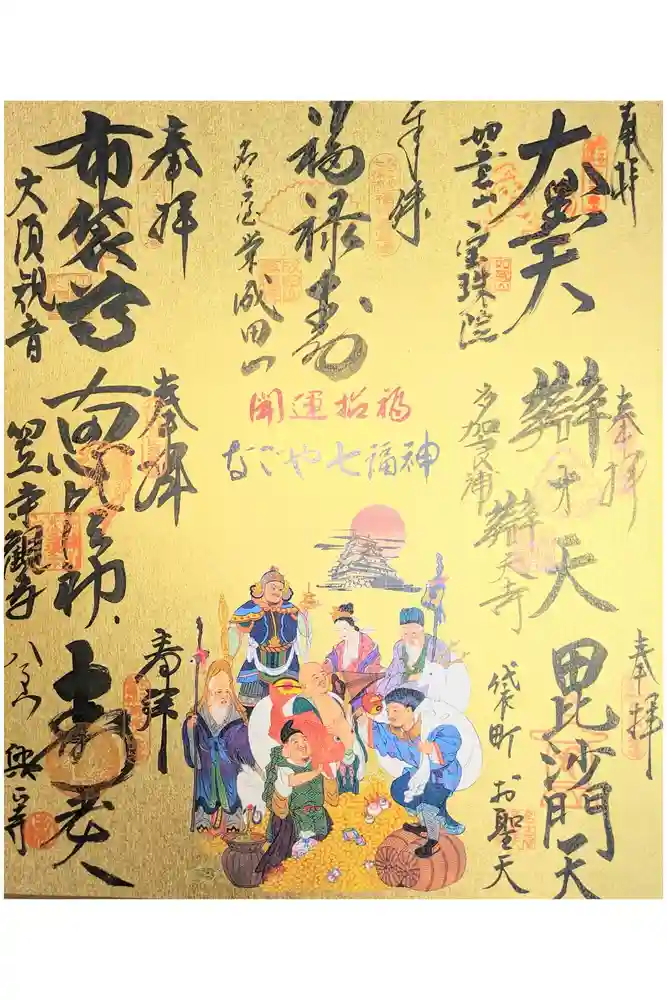 奉拝
大黒天
如意山 宝珠院
奉拝
辯才天
多加良浦
辯天寺
奉拝
毘沙門天
袋町 お聖天
奉拝
福禄寿
名古屋栄 成田山
開運招福
なごや七福神
奉拝
布袋尊
大須観音
奉拝
笠寺観音
奉拝
寿老人
八事山 興正寺